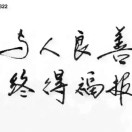 022
与人良善
终得福报